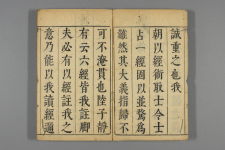 誠重之也我
朝以經術取士令士
占一經固以並騖為
難然其大義指歸不
可不淹貫也陸子靜
有云六經皆我註脚
夫必有以經註我之
意乃能以我讀經遡